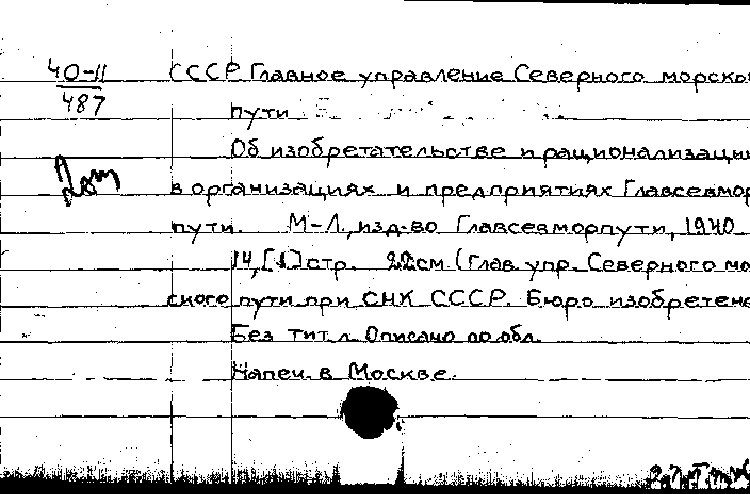 40-11 СССР Главное управление Северного морско
487
пути
Об изобретательстве и рационализации
в организациях и предприятиях Главсевмор
пути. М-Л, изд-во Главсевморпути, 1940
14, [1] стр. 22 см (Глав. упр. Северного мо
ского пути при СНК СССР. Бюро изобретен
Без тит. л. Описано по обл.
Напеч. в Москве.